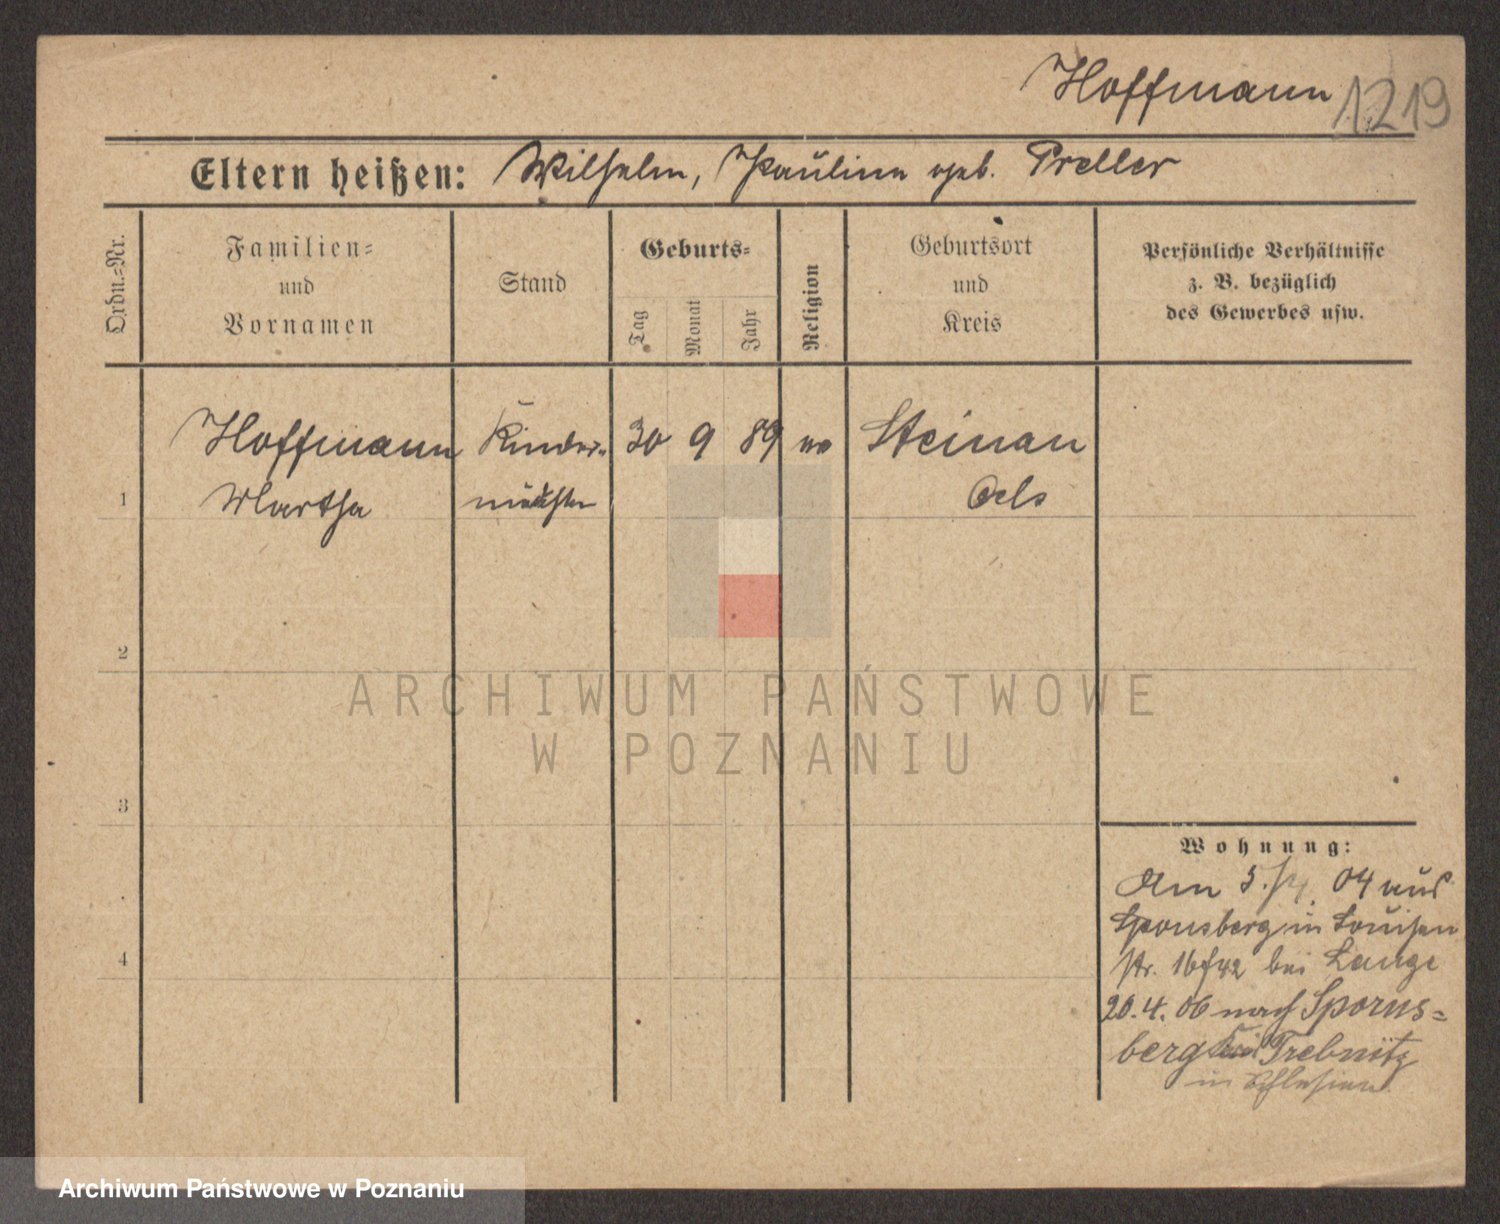 Hoffmann 1219
Eltern heißen: Wilhelm, Pauline geb. Preller
Ordn.-Nr.
Familien-
und
Vornamen
Stand
Geburts-
Tag
Monat
Jahr
Religion
Geburtsort
und
Kreis
Persönliche Verhältnisse
z. B. bezüglich
des Gewerbes usw.
Hoffmann Kinder- 30 9 89 ev Steinau
1 Martha Oels
2
3
4
Wohnung:
Am 5. 04 aus
Sponsberg in Louisen
str. bei Lange
20.4.06 nach Sporns-
berg Trebnitz
in Schlesien
ARCHIWUM PAŃSTWOWE
W POZNANIU
Archiwum Państwowe w Poznaniu